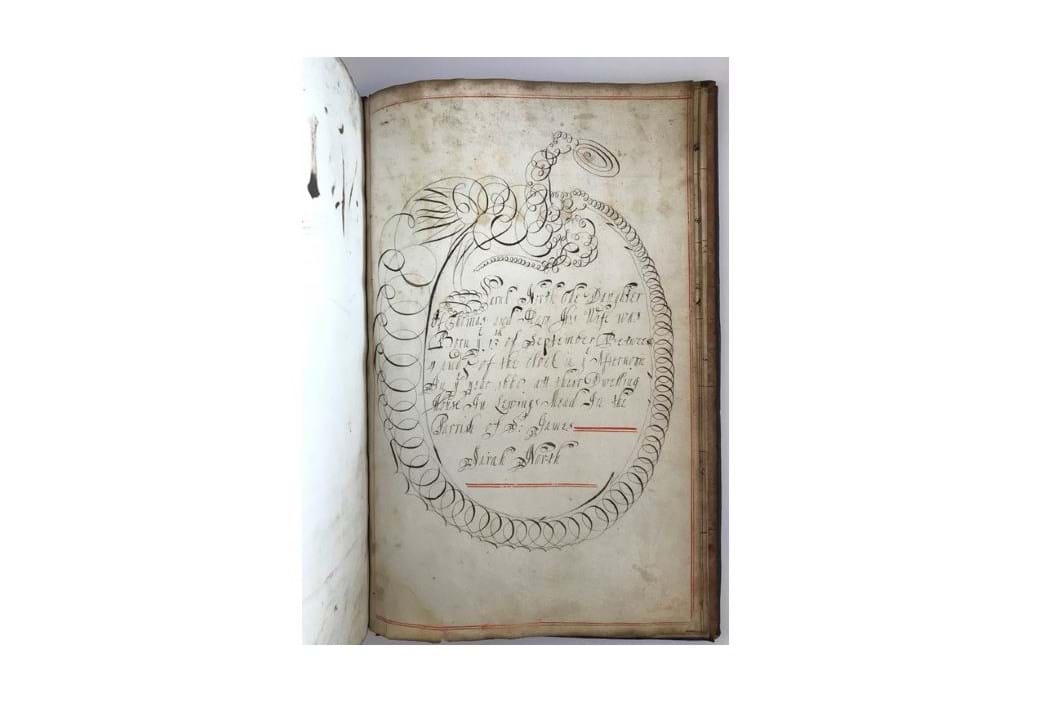 Sarah North the Daughter
Of Thomas and Mary His Wife was
Born ye 13th of September Between
and of the Clock in ye Afternoon
In ye year 1660 att their Dwelling
House In Lewings Mead In the
Parrish of St: James
Sarah North